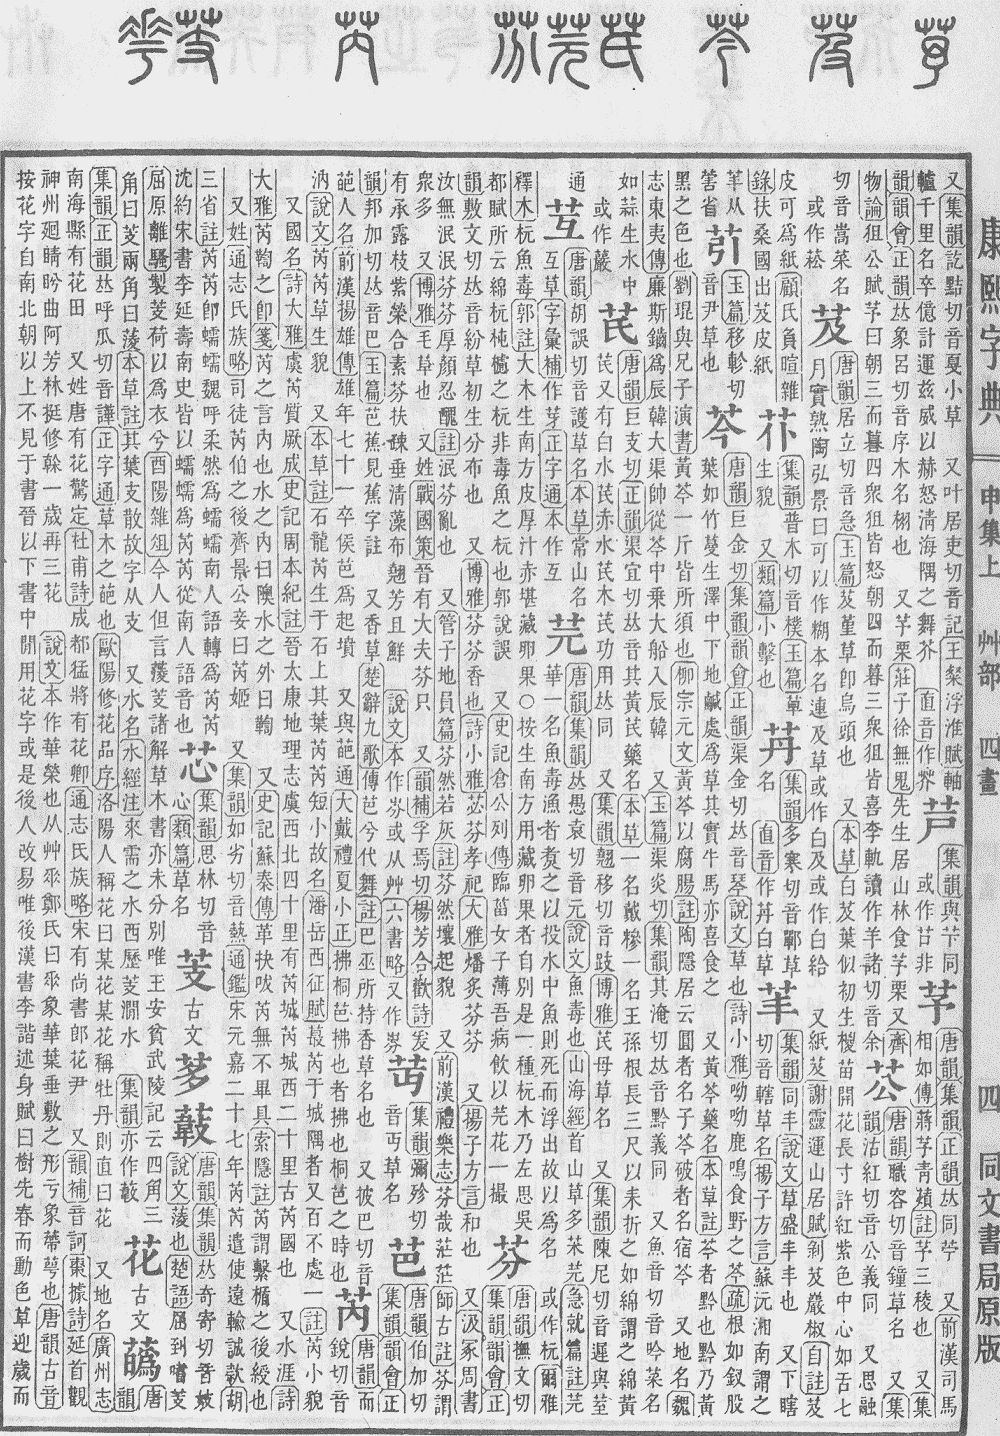 康熙字典 申集上 艸部 四畫 四 同文書局原版
又集韻訖黠切音戛小草 又叶居吏切音記王粲浮淮賦軸
轤千里名卒億計運茲威以赫怒清海隅之蔕芥 直音作
芦 集韻與芐同
或作苷非
芧 唐韻集韻正韻𠀤同苧 又前漢司馬
相如傳蔣芧青薠註芧三稜也 又集
韻韻會正韻𠀤象呂切音序木名栩也 又芧栗莊子徐無鬼先生居山林食芧栗又齊
物論狙公賦芧曰朝三而暮四衆狙皆怒朝四而暮三衆狙皆喜李軌讀作羊諸切音余
䒶 唐韻職容切音鐘草名 又集
韻沽紅切音公義同 又思融
切音嵩菜名
或作菘
芨 唐韻居立切音急玉篇芨堇草卽烏頭也 又本草白芨葉似初生椶苗開花長寸許紅紫色中心如舌七
月實熟陶弘景曰可以作糊本名連及草或作白及或作白給 又紙芨謝靈運山居賦剝芨巖椒自註芨
皮可爲紙顧氏負暄雜
錄扶桑國出芨皮紙
集韻普木切音樸玉篇草
生貌 又類篇小擊也
集韻多寒切音鄲草
名 直音作苒白草
集韻同丰說文草盛丰丰也 又下瞎
切音轄草名揚子方言蘇沅湘南謂之
玉篇移軫切
音尹草也
芩 唐韻巨金切集韻韻會正韻渠金切𠀤音琴說文草也詩小雅呦呦鹿鳴食野之芩疏根如釵股
葉如竹蔓生澤中下地鹹處爲草其實牛馬亦喜食之 又黃芩藥名本草註芩者黔也黔乃黃
黑之色也劉琨與兄子演書黃芩一斤皆所須也柳宗元文黃芩以腐腸註陶隱居云圓者名子芩破者名宿芩 又地名魏
志東夷傳廉斯鑡爲辰韓大渠帥從芩中乗大船入辰韓 又玉篇渠炎切集韻其淹切𠀤音黔義同 又魚音切音吟菜名
如蒜生水中
或作䕾
芪 唐韻巨支切正韻渠宜切𠀤音其黃芪藥名本草一名戴糝一名王孫根長三尺以来折之如綿謂之綿黃
芪又有白水芪赤水芪木芪功用𠀤同 又集韻翹移切音跂博雅芪母草名 又集韻陳尼切音遲與荎
通
芄 唐韻胡誤切音護草名本草常山名
互草字彙補作芽正字通本作互
芫 唐韻集韻𠀤愚袁切音元說文魚毒也山海經首山草多茱芫急就篇註芫
華一名魚毒漁者煑之以投水中魚則死而浮出故以爲名 或作杬爾雅
釋木杬魚毒郭註大木生南方皮厚汁赤堪藏卵果○按生南方用藏卵果者自別是一種杬木乃左思吳
都賦所云綿杬杶櫨之杬非毒魚之杬也郭說誤 又史記倉公列傳臨菑女子薄吾病飮以芫花一撮
芬 唐韻撫文切
集韻韻會正
韻敷文切𠀤音紛草初生分布也 又博雅芬芬香也詩小雅苾芬孝祀大雅燔炙芬芬 又揚子方言和也 又汲冢周書
汝無泯泯芬芬厚顔忍醜註泯芬亂也 又管子地員篇芬然若灰註芬然壤起貌 又前漢禮樂志芬哉茫茫師古註芬謂
衆多 又博雅毛草也 又姓戰國策晉有大夫芬只 又韻補孚焉切楊芳合歡詩
有承露枝紫榮合素芬扶疎垂清藻布翹芳且鮮 說文本作𡴞或从艸六書略又作岁
集韻彌殄切
音丏草名
芭 唐韻伯加切
集韻韻會正
韻邦加切𠀤音巴玉篇芭蕉見蕉字註 又香草楚辭九歌傳芭兮代舞註巴巫所持香草名也 又披巴切音
葩人名前漢揚雄傳雄年七十一卒侯芭爲起墳 又與葩通大戴禮夏小正拂桐芭拂也者拂也桐芭之時也
芮 唐韻而
銳切音
汭說文芮芮草生貌 又本草註石龍芮生于石上其葉芮芮短小故名潘岳西征賦蕞芮于城隅者又百不處一註芮小貌
又國名詩大雅虞芮質厥成史記周本紀註晉太康地理志虞西北四十里有芮城芮城西二十里古芮國也 又水涯詩
大雅芮鞫之卽箋芮之言內也水之內曰隩水之外曰鞫 又史記蘇秦傳革抉㕹芮無不畢具索隱註芮謂繫楯之後綬也
又姓通志氏族略司徒芮伯之後齊景公妾曰芮姬 又集韻如劣切音熱通鑑宋元嘉二十七年芮芮遣使遠輸誠款胡
三省註芮芮卽蠕蠕魏呼柔然爲蠕蠕南人語轉爲芮芮
沈約宋書李延壽南史皆以蠕蠕爲芮芮從南人語音也
芯 集韻思林切音
心類篇草名
芰 古文 茤 𦽅 唐韻集韻𠀤奇寄切音妓
說文蔆也楚語屈到嗜芰
屈原離騷製芰荷以爲衣兮酉陽雜俎今人但言蔆芰諸解草木書亦未分別唯王安貧武陵記云四角三
角曰芰兩角曰菱本草註其葉支散故字从支 又水名水經注來需之水西歷芰澗水 集韻亦作𦽅
花 古文 蘤 唐
韻
集韻正韻𠀤呼瓜切音譁正字通草木之葩也歐陽修花品序洛陽人稱花曰某花某花稱牡丹則直曰花 又地名廣州志
南海縣有花田 又姓唐有花驚定杜甫詩成都猛將有花卿通志氏族略宋有尚書郎花尹 又韻補音訶棗據詩延首觀
神州廻睛盻曲阿芳林挺修榦一歲再三花 說文本作華榮也从艸𠌶鄭氏曰𠌶象華葉垂敷之形亏象蔕萼也唐韻古音
按花字自南北朝以上不見于書晉以下書中閒用花字或是後人改易唯後漢書李諧述身賦曰樹先春而動色草迎歲而